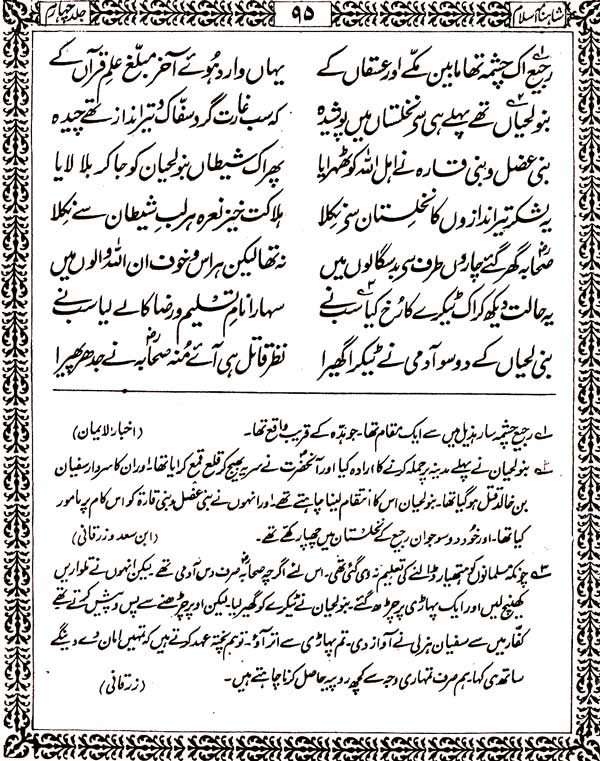 شاہنامہ اسلام ۹۵ جلد چہارم
رجیع اک چشمہ تھا مابین مکّے اور عسفاں کے یہاں وارد ہوئے آخر مبلّغ علمِ قرآں کے
بنو لحیاں تھے پہلے ہی سے نخلستاں میں پوشیدہ کہ سب غارت گر و سفّاک و تیر انداز تھے چیدہ
بنی عضل و بنی قارہ نے اہل اللہ کو ٹھہرایا پھر اک شیطاں بنو لحیان کو جا کر بلا لایا
یہ لشکر تیر اندازوں کا نخلستان سے نکلا ہلاکت خیز نعرہ ہر لبِ شیطان سے نکلا
صحابہؓ گھر گئے چاروں طرف سے بدسگالوں میں نہ تھا لیکن ہراس و خوف ان اللہ والوں میں
یہ حالت دیکھ کر اک ٹیکرے کا رخ کیا سب نے سہارا نامِ تسلیم و رضا کا لے لیا سب نے
بنی لحیاں کے دو سو آدمی نے ٹیکرا گھیرا نظر قاتل ہی آئے منہ صحابہؓ نے جدھر پھیرا
۱؎ رجیع چشمہ سار ہذیل میں سے ایک مقام تھا۔ جو ہدہ کے قریب واقع تھا۔ (اخبار الایمان)
۲؎ بنو لحیان نے پہلے مدینہ پر حملہ کرنے کا ارادہ کیا اور آنحضرتؐ نے سریہ بھیج کر قلع قمع کرایا تھا۔ اور ان کا سردار سفیان
بن خالد قتل ہو گیا تھا۔ بنو لحیان اس کا انتقام لینا چاہتے تھے۔ اور انہوں نے بنی عضل و بنی قارۃ کو اس کام پر مامور
کیا تھا۔ اور خود دو سو جوان رجیع کے نخلستان میں چھپا رکھے تھے۔ (ابن سعد و زرقانی)
۳؎ چونکہ مسلمانوں کو ہتھیار ڈالنے کی تعلیم نہ دی گئی تھی۔ اس لئے اگرچہ صحابہؓ صرف دس آدمی تھے لیکن انہوں نے تلواریں
کھینچ لیں اور ایک پہاڑی پر چڑھ گئے۔ بنو لحیان نے ٹیکرے کو گھیر لیا۔ لیکن اوپر چڑھنے سے پس و پیش کرتے تھے
کفار میں سے سفیان ہزلی نے آواز دی۔ تم پہاڑی سے اتر آؤ۔ تو ہم پختہ عہد کرتے ہیں کہ تمہیں امان دے دینگے
ساتھ ہی کہا۔ ہم صرف تمہاری وجہ سے کچھ روپیہ حاصل کرنا چاہتے ہیں۔ (زرقانی)